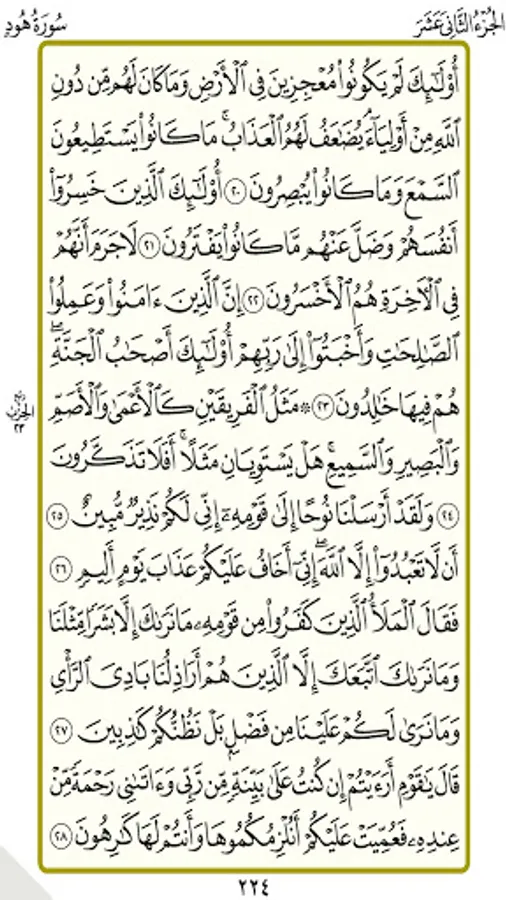 الجزء الثاني عشر
سورة هود
أُوْلَٰٓئِكَ لَمْ يَكُونُوا۟ مُعْجِزِينَ فِى ٱلْأَرْضِ وَمَا كَانَ لَهُم مِّن دُونِ
ٱللَّهِ مِنْ أَوْلِيَآءَ ۘ يُضَٰعَفُ لَهُمُ ٱلْعَذَابُ ۚ مَا كَانُوا۟ يَسْتَطِيعُونَ
ٱلسَّمْعَ وَمَا كَانُوا۟ يُبْصِرُونَ ٢٠ أُو۟لَٰٓئِكَ ٱلَّذِينَ خَسِرُوٓا۟
أَنفُسَهُمْ وَضَلَّ عَنْهُم مَّا كَانُوا۟ يَفْتَرُونَ ٢١ لَا جَرَمَ أَنَّهُمْ
فِى ٱلْءَاخِرَةِ هُمُ ٱلْأَخْسَرُونَ ٢٢ إِنَّ ٱلَّذِينَ ءَامَنُوا۟ وَعَمِلُوا۟
ٱلصَّٰلِحَٰتِ وَأَخْبَتُوٓا۟ إِلَىٰ رَبِّهِمْ أُو۟لَٰٓئِكَ أَصْحَٰبُ ٱلْجَنَّةِ ۖ
هُمْ فِيهَا خَٰلِدُونَ ٢٣ ۞ مَثَلُ ٱلْفَرِيقَيْنِ كَٱلْأَعْمَىٰ وَٱلْأَصَمِّ
ربع الحزب ٢٣
وَٱلْبَصِيرِ وَٱلسَّمِيعِ ۚ هَلْ يَسْتَوِيَانِ مَثَلًا ۚ أَفَلَا تَذَكَّرُونَ
٢٤ وَلَقَدْ أَرْسَلْنَا نُوحًا إِلَىٰ قَوْمِهِۦٓ إِنِّى لَكُمْ نَذِيرٌ مُّبِينٌ ٢٥
أَن لَّا تَعْبُدُوٓا۟ إِلَّا ٱللَّهَ ۖ إِنِّىٓ أَخَافُ عَلَيْكُمْ عَذَابَ يَوْمٍ أَلِيمٍ ٢٦
فَقَالَ ٱلْمَلَأُ ٱلَّذِينَ كَفَرُوا۟ مِن قَوْمِهِۦ مَا نَرَىٰكَ إِلَّا بَشَرًا مِّثْلَنَا
وَمَا نَرَىٰكَ ٱتَّبَعَكَ إِلَّا ٱلَّذِينَ هُمْ أَرَاذِلُنَا بَادِىَ ٱلرَّأْىِ
وَمَا نَرَىٰ لَكُمْ عَلَيْنَا مِن فَضْلٍۭ بَلْ نَظُنُّكُمْ كَٰذِبِينَ ٢٧
قَالَ يَٰقَوْمِ أَرَءَيْتُمْ إِن كُنتُ عَلَىٰ بَيِّنَةٍ مِّن رَّبِّى وَءَاتَىٰنِى رَحْمَةً مِّنْ
عِندِهِۦ فَعُمِّيَتْ عَلَيْكُمْ أَنُلْزِمُكُمُوهَا وَأَنتُمْ لَهَا كَٰرِهُونَ ٢٨
٢٢٤